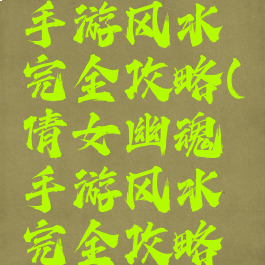 手游风水
完全攻略(
倩女幽魂
手游风水
完全攻略